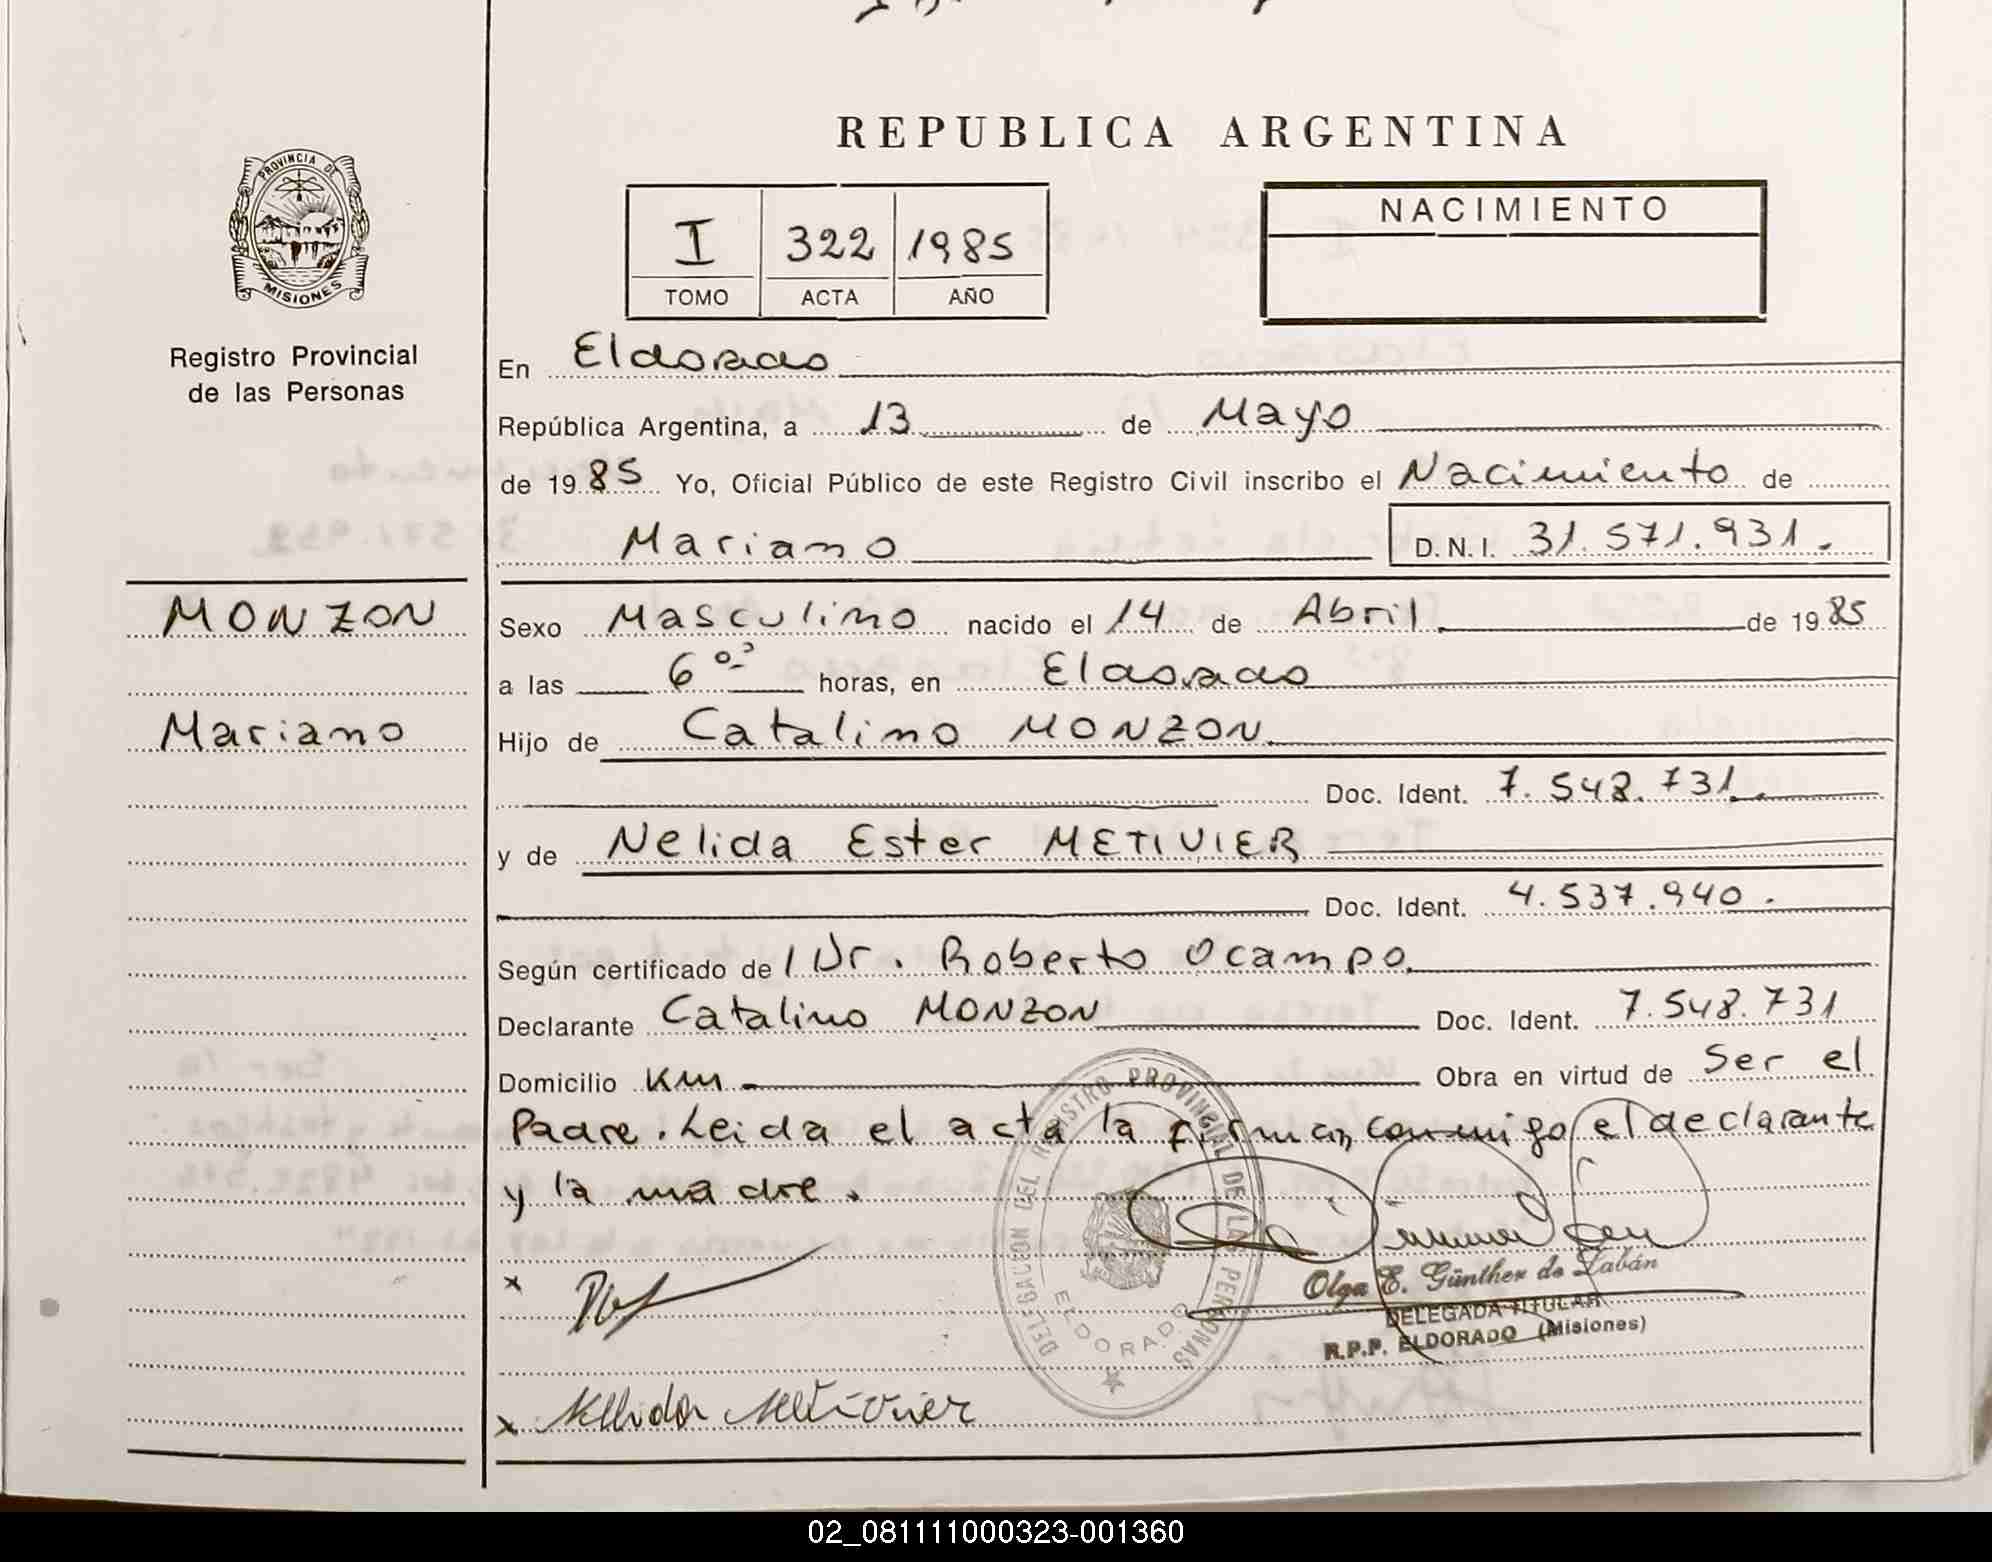 REPUBLICA ARGENTINA
PROVINCIA DE
MISIONES
Registro Provincial
de las Personas
I 322 1985
TOMO ACTA AÑO
NACIMIENTO
En Eldorado
República Argentina, a 13 de Mayo
de 1985 Yo, Oficial Público de este Registro Civil inscribo el Nacimiento de
Mariano D.N.I. 31.571.931.
MONZON
Mariano
Sexo Masculino nacido el 14 de Abril de 1985
a las 6 horas, en Eldorado
Hijo de Catalino MONZON
Doc. Ident. 7.548.731.
y de Nelida Ester METIVIER
Doc. Ident. 4.537.940.
Según certificado de Dr. Roberto Ocampo
Declarante Catalino MONZON Doc. Ident. 7.548.731
Domicilio Km Obra en virtud de Ser el
Padre. Leida el acta la firman conmigo el declarante
y la madre.
DELEGACION DEL REGISTRO PROVINCIAL DE LAS PERSONAS
ELDORADO
Olga E. Günther de Zabán
DELEGADA TITULAR
R.P.P. ELDORADO (Misiones)
x
x Nelida Metivier
02_081111000323-001360